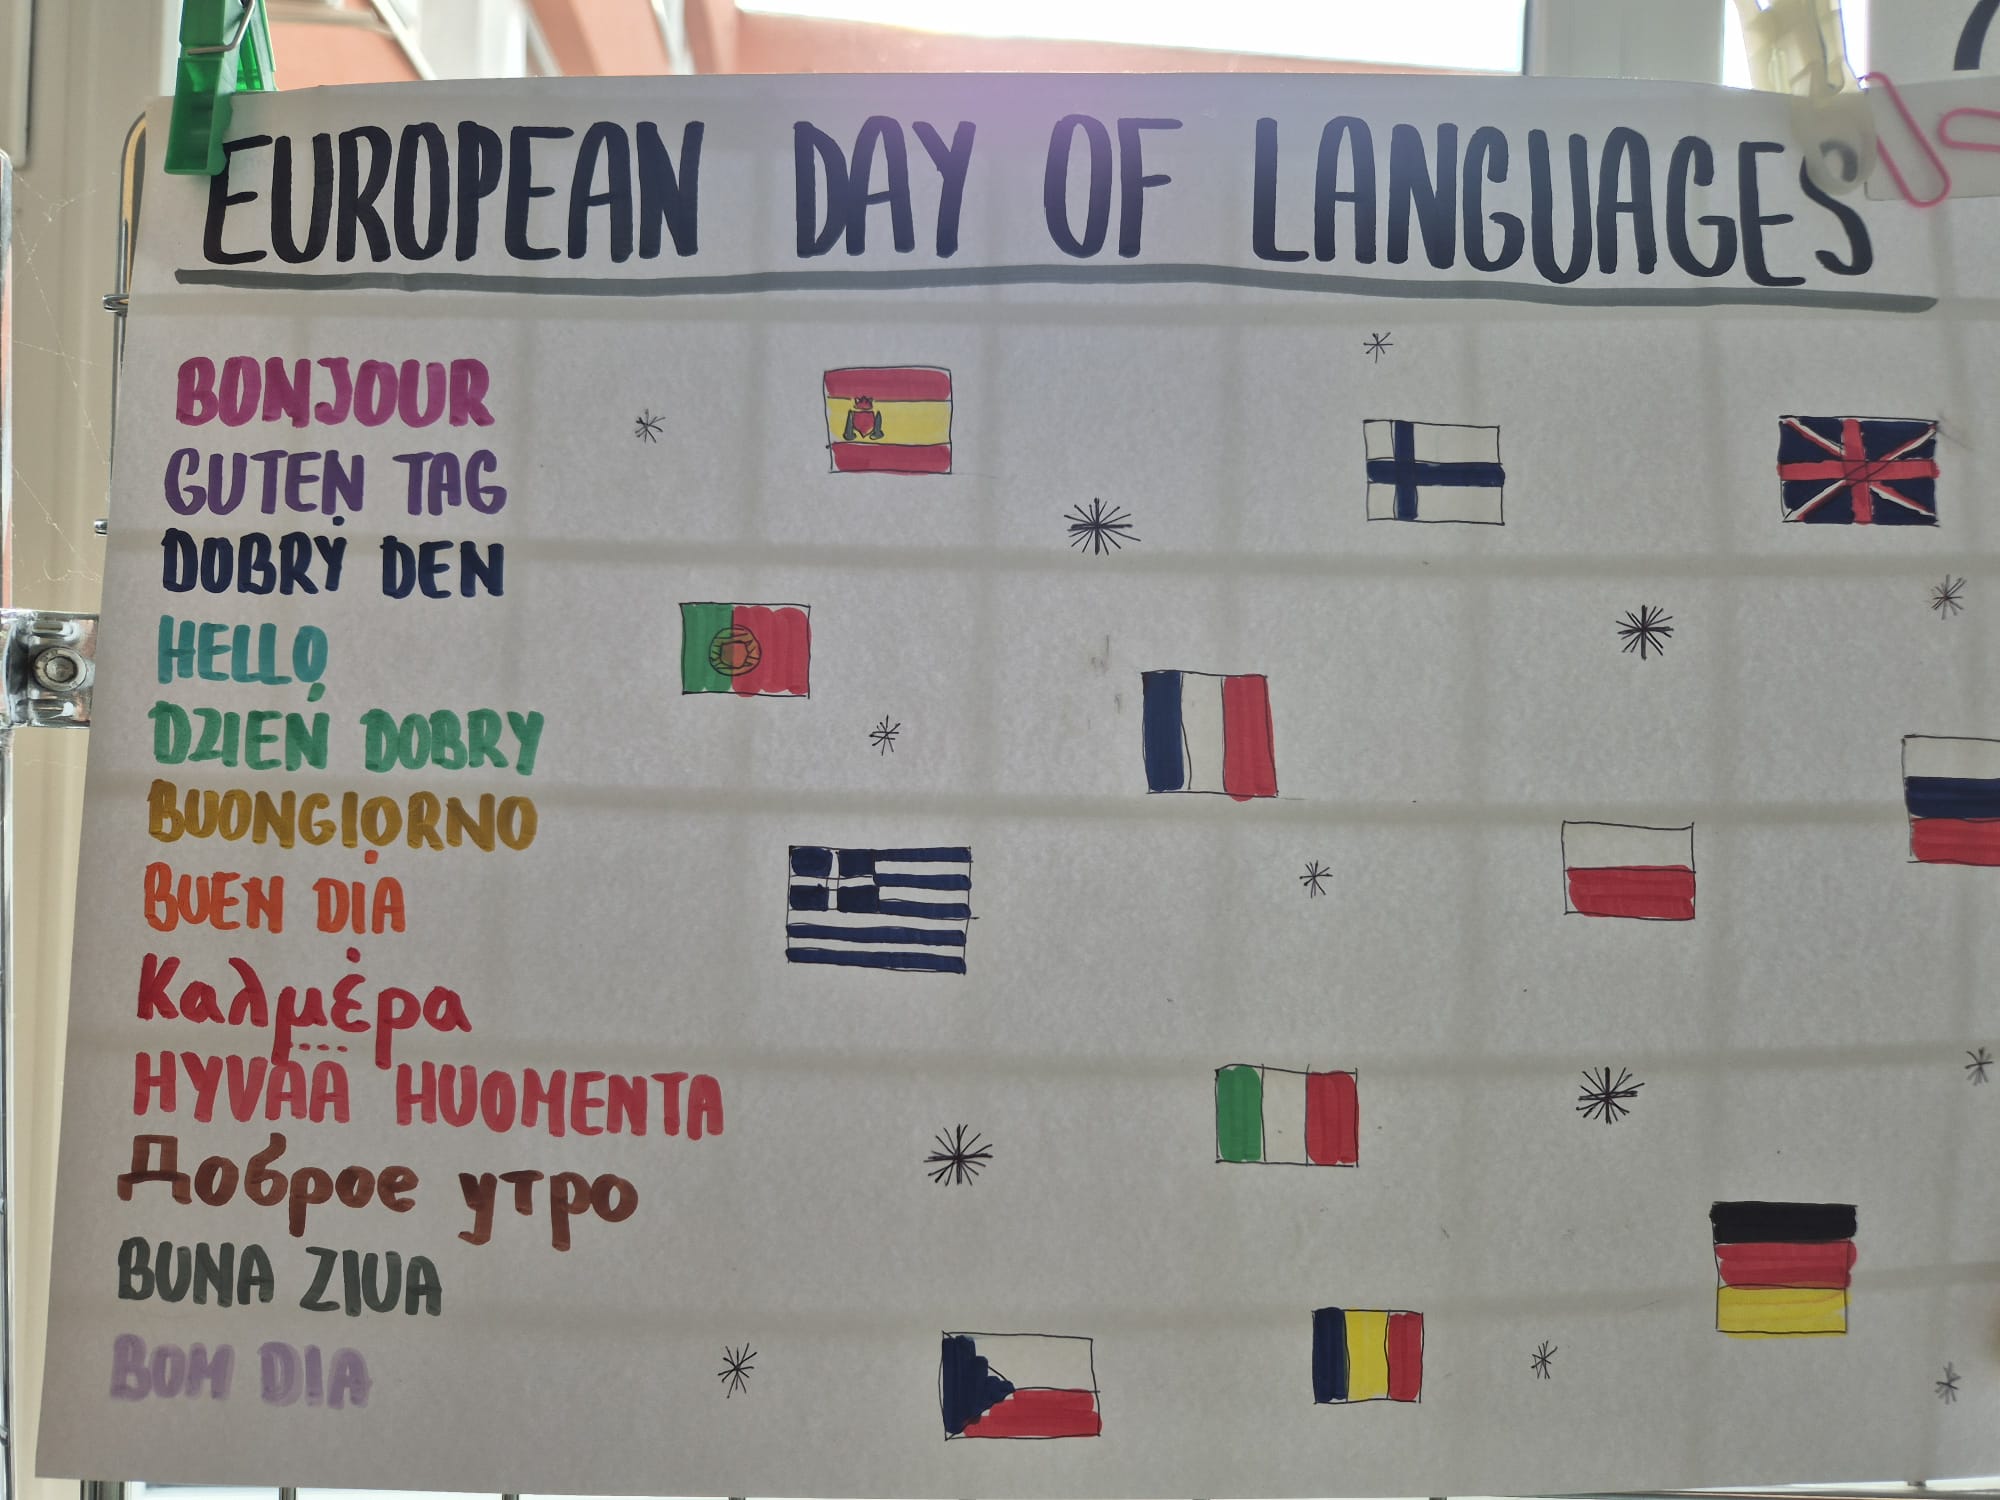 EUROPEAN DAY OF LANGUAGES
BONJOUR
GUTEN TAG
DOBRÝ DEN
HELLO
DZIEŃ DOBRY
BUONGIORNO
BUEN DÍA
Καλμέρα
HYVÄÄ HUOMENTA
Доброе утро
BUNA ZIUA
BOM DIA